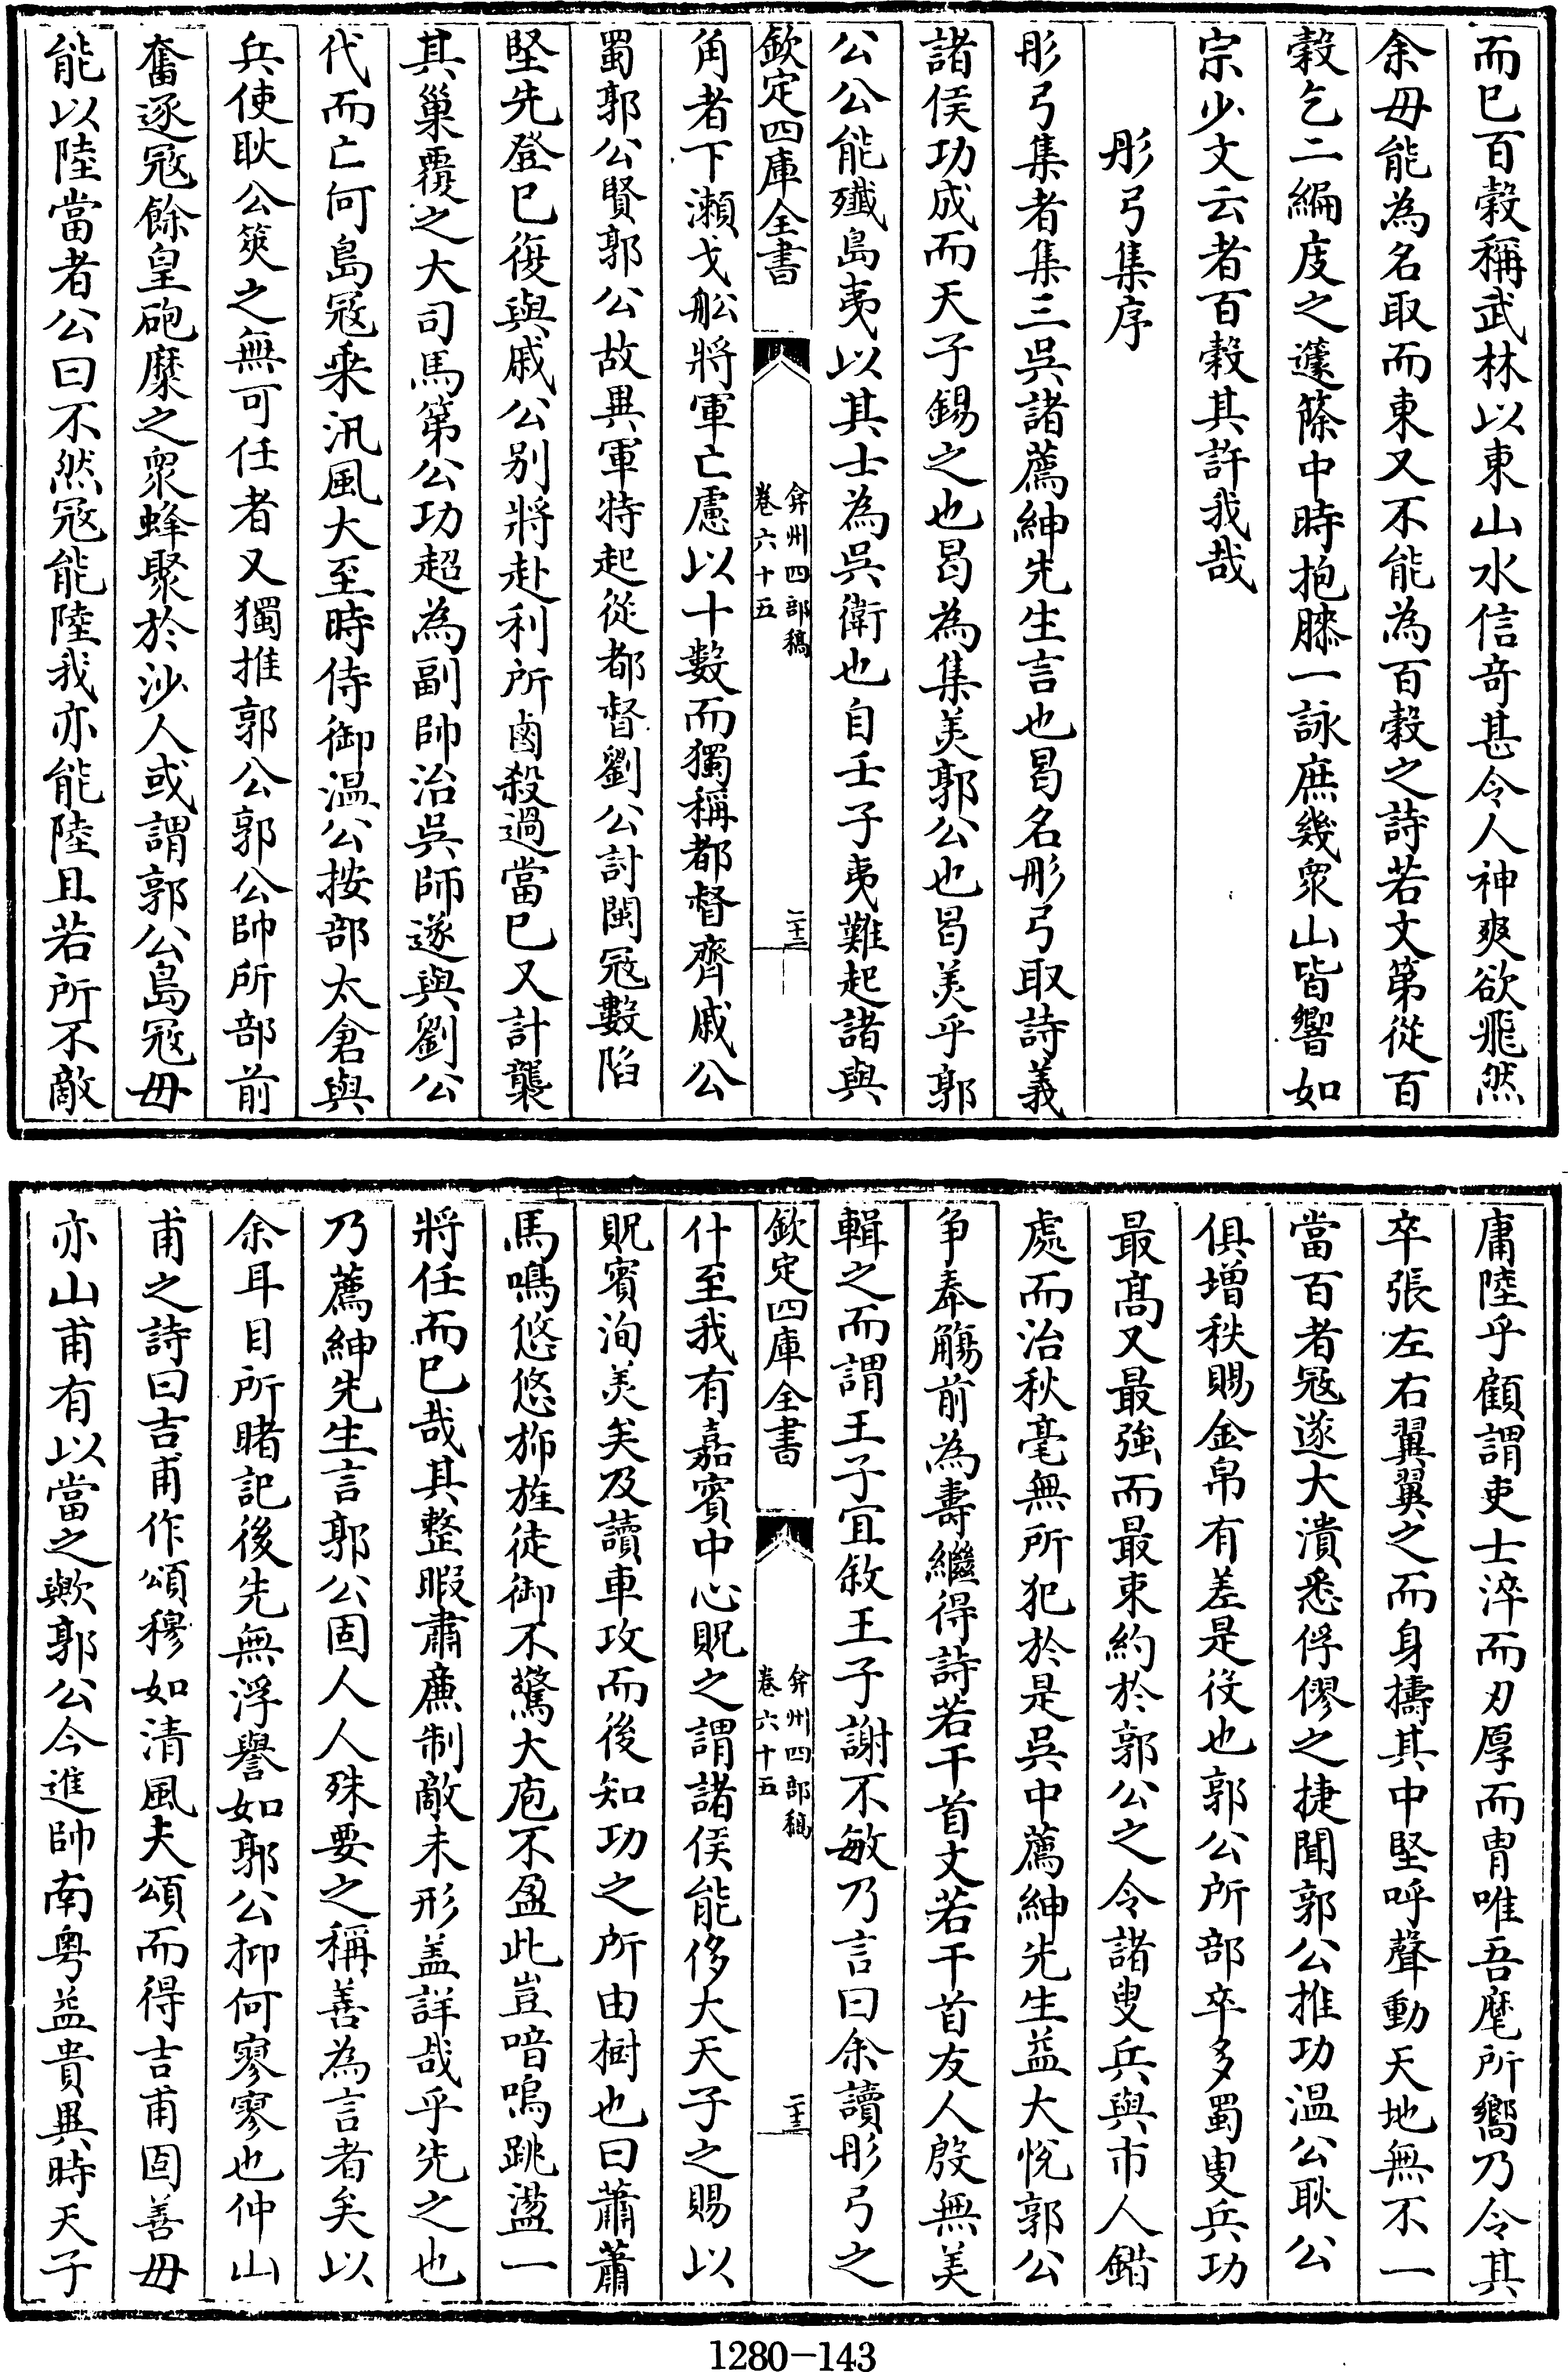 而已百榖稱武林以東山水信竒甚令人神爽欲飛然
余毋能為名取而東又不能為百榖之詩若文第從百
榖乞二編庋之蘧篨中時抱膝一詠庶幾衆山皆響如
宗少文云者百榖其許我哉
彤弓集序
彤弓集者集三吳諸薦紳先生言也曷名彤弓取詩義
諸侯功成而天子錫之也曷為集美郭公也曷美乎郭
公公能殱島夷以其士為吳衛也自壬子夷難起諸與
欽定四庫全書
弇州四部稿
卷六十五
二十二
角者下瀬戈舩將軍亡慮以十數而獨稱都督齊戚公
蜀郭公賢郭公故異軍特起從都督劉公討閩冦數陷
堅先登已復與戚公别將赴利所鹵殺過當已又計襲
其巢覆之大司馬第公功超為副帥治吳師遂與劉公
代而亡何島冦乗汛風大至時侍御温公按部太倉與
兵使耿公筴之無可任者又獨推郭公郭公帥所部前
奮逐冦餘皇砲糜之衆蜂聚於沙人或謂郭公島冦毋
能以陸當者公曰不然冦能陸我亦能陸且若所不敵
庸陸乎顧謂吏士淬而刃厚而胄唯吾麾所嚮乃令其
卒張左右翼翼之而身擣其中堅呼聲動天地無不一
當百者冦遂大潰悉俘僇之捷聞郭公推功温公耿公
俱增秩賜金帛有差是役也郭公所部卒多蜀叟兵功
最髙又最強而最束約於郭公之令諸叟兵與市人錯
處而治秋毫無所犯於是吳中薦紳先生益大悅郭公
争奉觴前為壽繼得詩若干首文若干首友人殷無美
輯之而謂王子宜敘王子謝不敏乃言曰余讀彤弓之
欽定四庫全書
弇州四部稿
卷六十五
二十三
什至我有嘉賓中心貺之謂諸侯能侈大天子之賜以
貺賓洵美矣及讀車攻而後知功之所由樹也曰蕭蕭
馬鳴悠悠斾旌徒御不驚大庖不盈此豈喑嗚跳盪一
將任而已哉其整暇肅亷制敵未形盖詳哉乎先之也
乃薦紳先生言郭公固人人殊要之稱善為言者矣以
余耳目所睹記後先無浮譽如郭公抑何寥寥也仲山
甫之詩曰吉甫作頌穆如清風夫頌而得吉甫固善毋
亦山甫有以當之歟郭公今進帥南粤益貴異時天子
1280-143